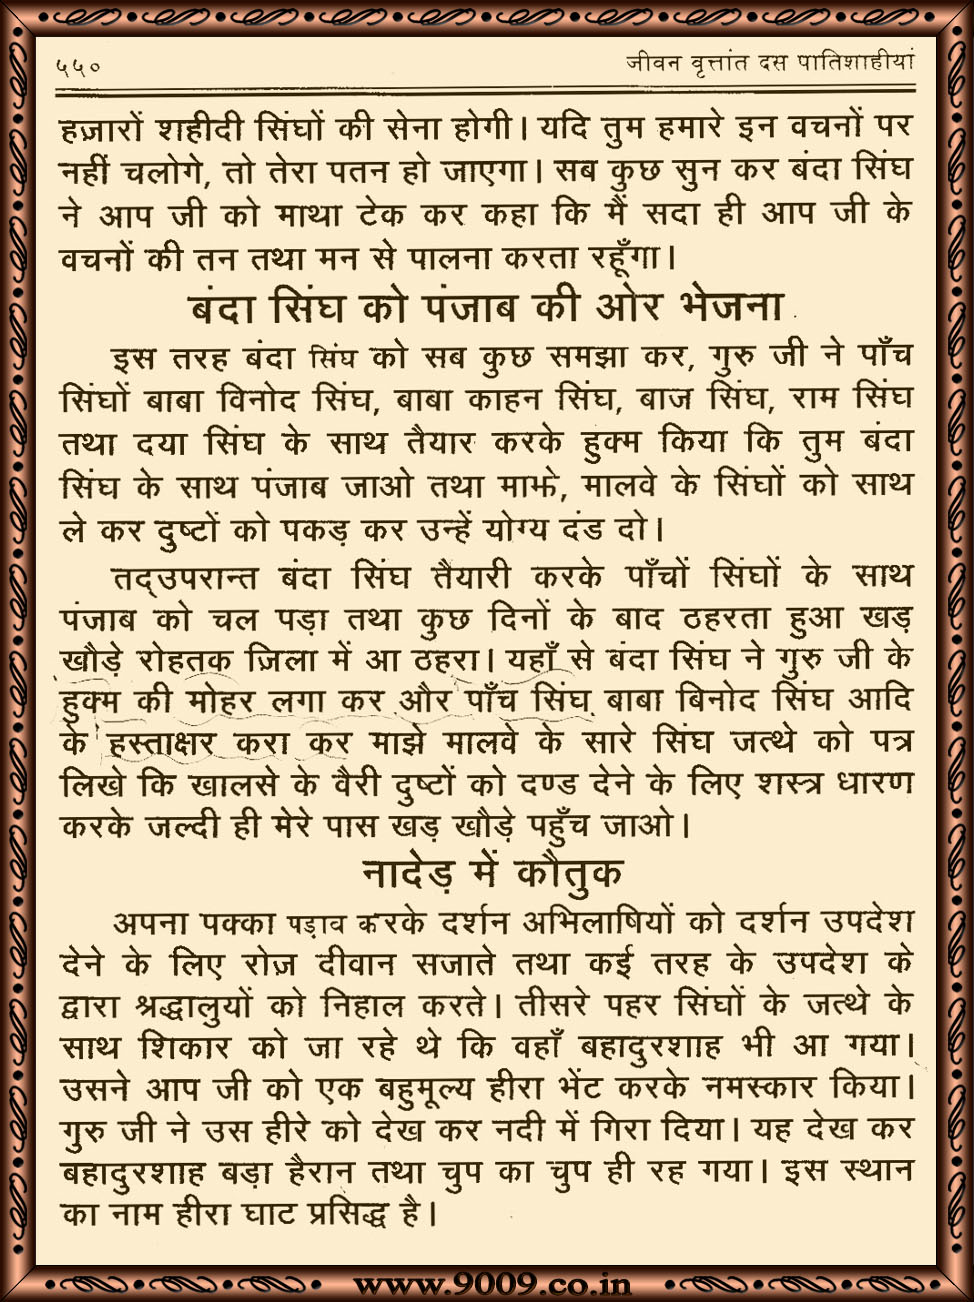 ५५०
जीवन वृत्तांत दस पातिशाहीयां
हज़ारों शहीदी सिंघों की सेना होगी। यदि तुम हमारे इन वचनों पर
नहीं चलोगे, तो तेरा पतन हो जाएगा। सब कुछ सुन कर बंदा सिंघ
ने आप जी को माथा टेक कर कहा कि मैं सदा ही आप जी के
वचनों की तन तथा मन से पालना करता रहूँगा।
बंदा सिंघ को पंजाब की ओर भेजना
इस तरह बंदा सिंघ को सब कुछ समझा कर, गुरु जी ने पाँच
सिंघों बाबा विनोद सिंघ, बाबा काहन सिंघ, बाज सिंघ, राम सिंघ
तथा दया सिंघ के साथ तैयार करके हुक्म किया कि तुम बंदा
सिंघ के साथ पंजाब जाओ तथा माझे, मालवे के सिंघों को साथ
ले कर दुष्टों को पकड़ कर उन्हें योग्य दंड दो।
तद्उपरान्त बंदा सिंघ तैयारी करके पाँचों सिंघों के साथ
पंजाब को चल पड़ा तथा कुछ दिनों के बाद ठहरता हुआ खड़
खौड़े रोहतक ज़िला में आ ठहरा। यहाँ से बंदा सिंघ ने गुरु जी के
हुक्म की मोहर लगा कर और पाँच सिंघ बाबा बिनोद सिंघ आदि
के हस्ताक्षर करा कर माझे मालवे के सारे सिंघ जत्थे को पत्र
लिखे कि खालसे के वैरी दुष्टों को दण्ड देने के लिए शस्त्र धारण
करके जल्दी ही मेरे पास खड़ खौड़े पहुँच जाओ।
नादेड़ में कौतुक
अपना पक्का पड़ाव करके दर्शन अभिलाषियों को दर्शन उपदेश
देने के लिए रोज़ दीवान सजाते तथा कई तरह के उपदेश के
द्वारा श्रद्धालुयों को निहाल करते। तीसरे पहर सिंघों के जत्थे के
साथ शिकार को जा रहे थे कि वहाँ बहादुरशाह भी आ गया।
उसने आप जी को एक बहुमूल्य हीरा भेंट करके नमस्कार किया।
गुरु जी ने उस हीरे को देख कर नदी में गिरा दिया। यह देख कर
बहादुरशाह बड़ा हैरान तथा चुप का चुप ही रह गया। इस स्थान
का नाम हीरा घाट प्रसिद्ध है।
www.9009.co.in